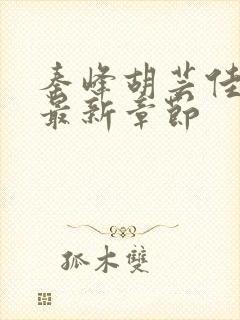 秦峰胡芸佳
最新章节
孤木雙